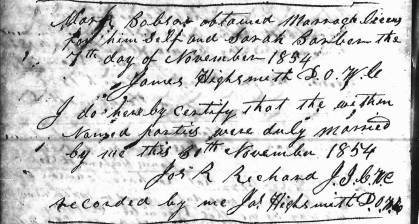 Mark Bobson obtained Marraoge Licens
for him Self and Sarah Barber the
7th day of November 1854
James Highsmith D.O.
I do hereby certify that the within
Named parties were duly married
by me this November 1854
Jos R Richard J.I.C.
recorded by me Jas Highsmith D.O.